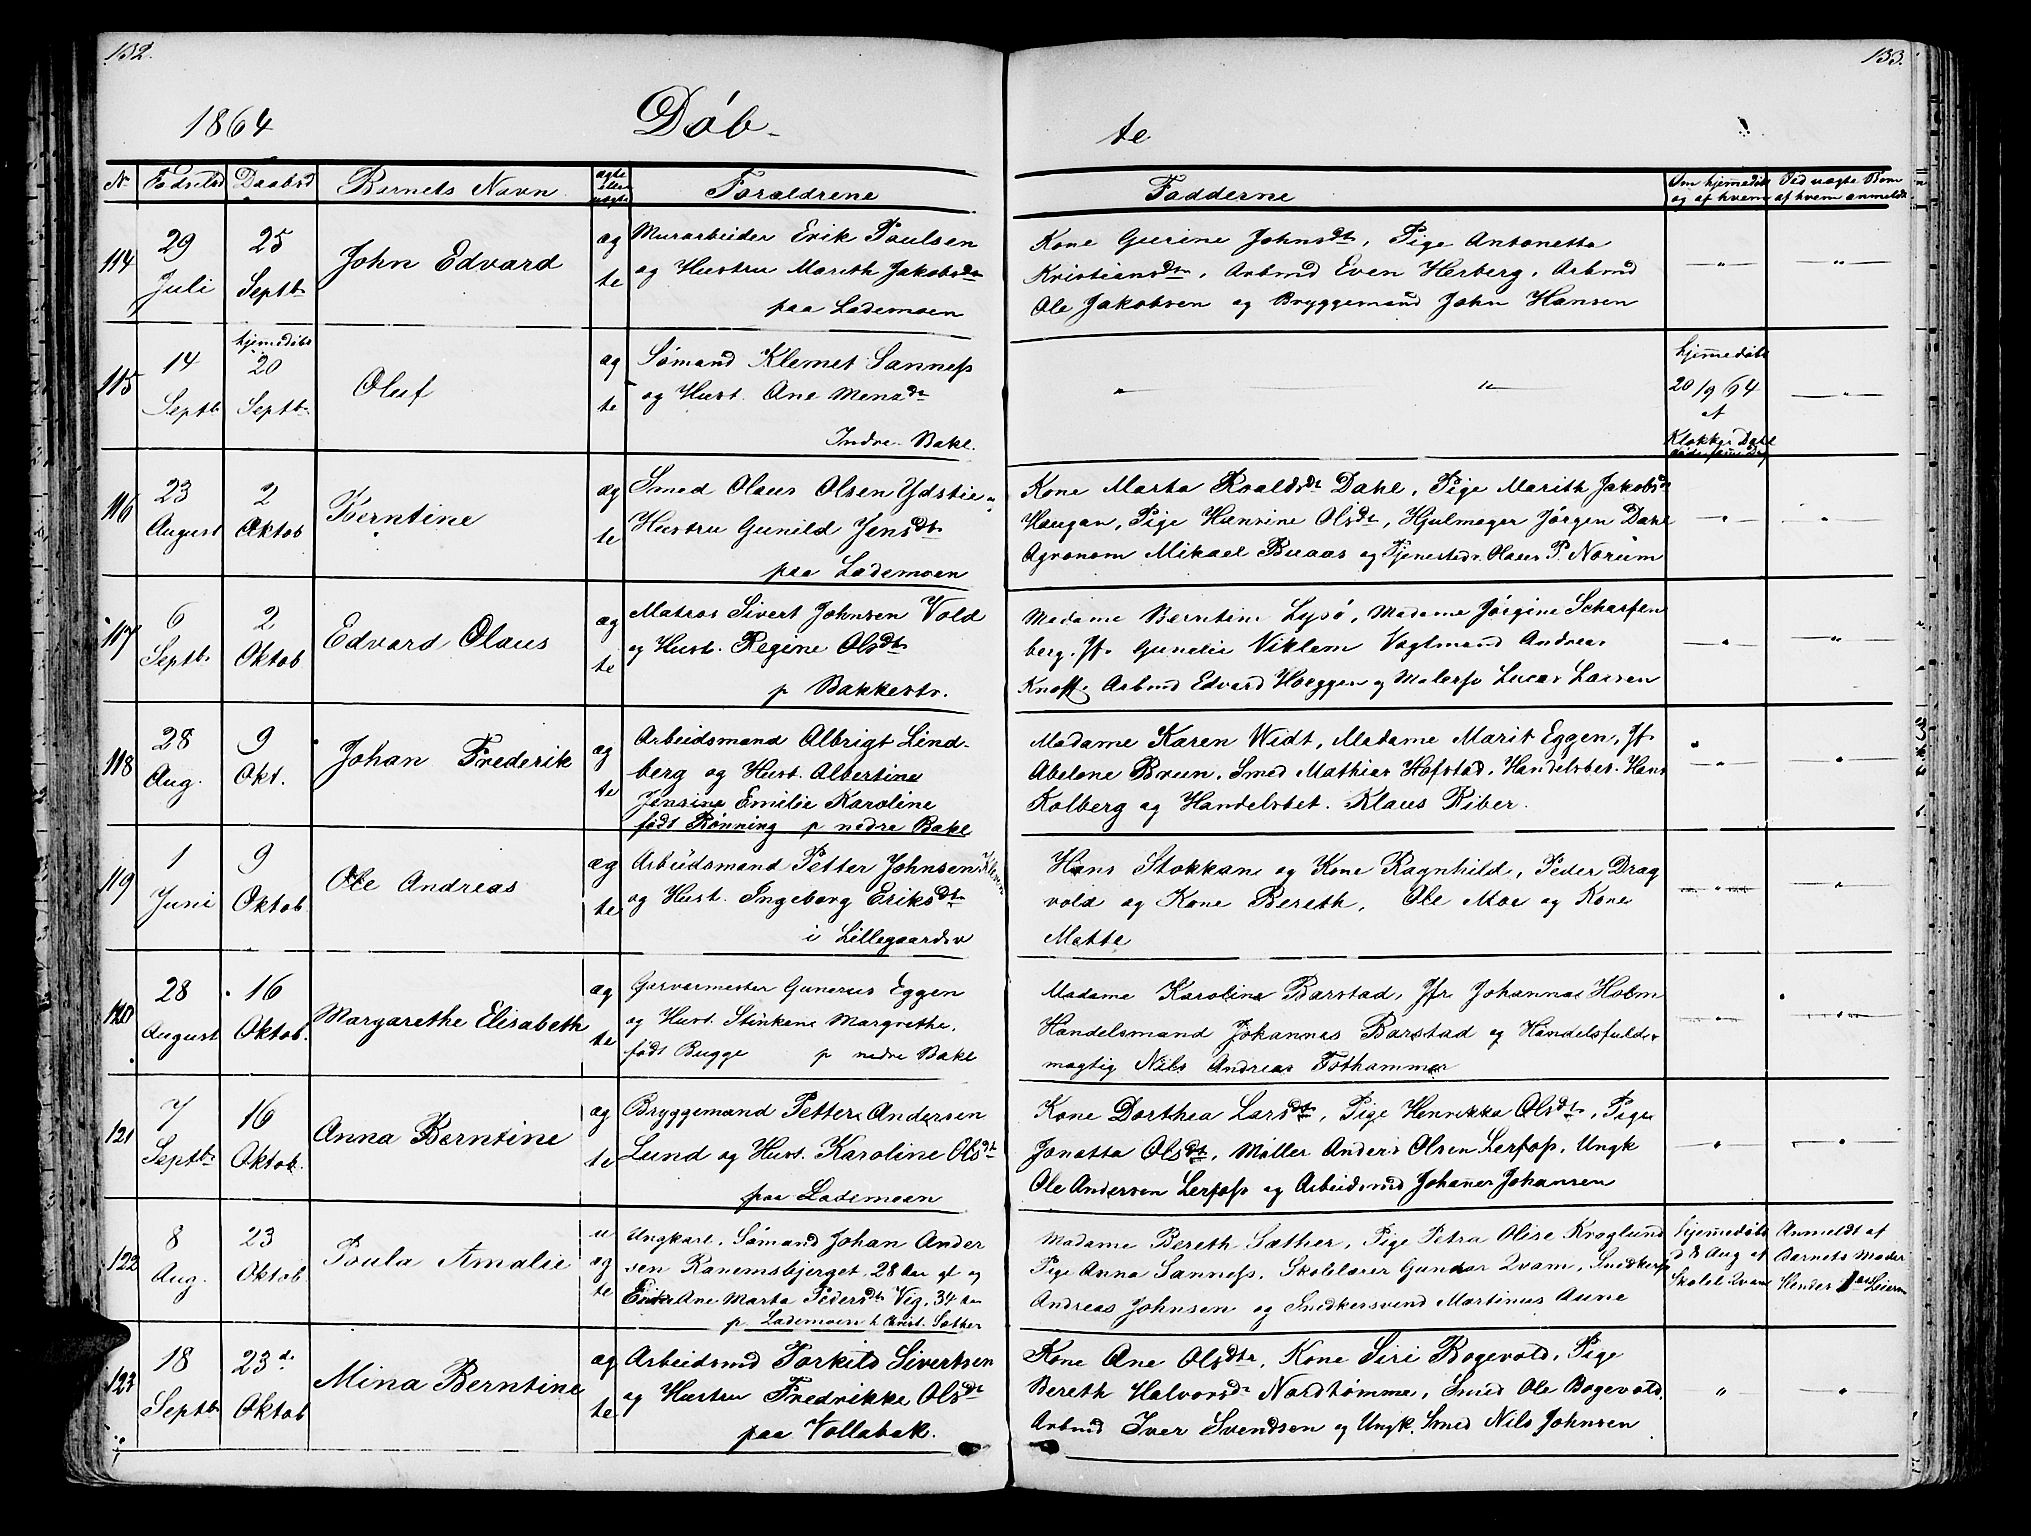 132.
133.
1864
Døb-
te
No Fødselsd Daabsd Barnets Navn ægte eller uægte Forældrene
Fadderne Om hjemmedøbt og af hvem Ved uægte Børn af hvem anmeldt
114 29 Juli 25 Septbr John Edvard æg te
Murarbeider Erik Poulsen
og Hustru Marith Jakobsdtr
paa Lademoen
Kone Gurine Johnsdtr, Pige Antonetta
Kristiansdtr, Arbmd Even Herberg, Arbmd
Ole Jakobsen og Bryggemand John Hansen
115 14 Septbr hjemedøbt 20 Septbr. Oluf æg te
Sømand Klemet Sanness
og Hust. Ane Mensdtr
Indre Bakl.
hjemmedøbt
20/9 64
af
Klokker Dahl
116 23 August 2 Oktob Berntine æg te
Smed Olaus Olsen Ydstie
Hustru Gunild Jensdtr
paa Lademoen
Kone Marta Roaldsdt Dahl, Pige Marith Jakobsdt
Haugan, Pige Hansine Olsdt, Hjulmager Jørgen Dahl
Agronom Mikael Buaas og Tjenestedr. Olaus P Norum
117 6 Septbr. 2 Oktob Edvard Olaus æg te
Matros Sivert Johnsen Vold
og Hust. Regine Olsdtr
p Bakkestr.
Madame Berntine Lysø, Madame Jørgine Scharfen
berg. Jf. Gunelie Viklem Vagtmand Andreas
Knoff, Arbmd Edvard Høeggen og Malersv Lucas Larsen
118 28 Aug. 9 Okt. Johan Frederik æg te
Arbeidsmand Albrigt Lind-
berg og Hust. Albertine
Jensine Emilie Karoline
født Rønning p nedre Bakl
Madame Karen Widt, Madame Marit Eggen, Jf.
Abelone Breen, Smed Mathias Hofstad, Handelsbet. Hans
Kolberg og Handelsbet. Klaus Riber.
119 1 Juni 9 Oktob Ole Andreas æg te
Arbeidsmand Petter Johnsen
og Hust. Ingeborg Eriksdt
i Lillegaardsv
Hans Stokkan og Kone Ragnhild, Peder Drag
vold og Kone Bereth, Ole Moe og Kone
Matte
120 28 August 16 Oktob. Margarethe Elisabeth æg te
Garvermester Gunerus Eggen
og Hust. Stinkene Margrethe,
født Bugge p nedre Bakl
Madame Karoline Barstad, Jfr Johannas Holm
Handelsmand Johannes Barstad og Handelsfuld-
mægtig Nils Andreas Fosthammer
121 7 Septbr 16 Oktob. Anna Berntine æg te
Bryggemand Petter Andersen
Lund og Hust. Karoline Olsdt
paa Lademoen
Kone Dorthea Larsdt, Pige Henrikka Olsdt, Pige
Jonetta Olsdt, Møller Anders Olsen Lerfoss, Ungk
Ole Andersen Lerfoss og Arbeidsmd Johanes Johansen
122 8 Aug. 23 Oktob Paula Amalie u æg te
Ungkarl, Sømand Johan Ander
sen Ranemsbjerget 28 Aar gl og
Enke Ane Marta Pedersdtr Vig, 34 Aar
p. Lademoen h Christ. Sæther
Madame Bereth Sæther, Pige Petra Olise Kroglund
Pige Anna Sanness, Skolelærer Gunder Qvam, Snedkersv
Andreas Johnsen og Snedkersvend Martinus Aune
hjemmedøbt
d 8 Aug af
Skolel Qvam
Anmeldt af
Barnets Moder
Hendes 1ste Leierm
123 18 Septbr 23de Oktob Mina Berntine æg te
Arbeidsmd Torkild Sivertsen
og Hustru Fredrikke Olsdt
paa Vollabak.
Kone Ane Olsdtr, Kone Siri Bogevold, Pige
Bereth Halvorsdt Nordtømme, Smed Ole Bogevold,
Arbmd Iver Svendsen og Ungk. Smed Nils Johnsen